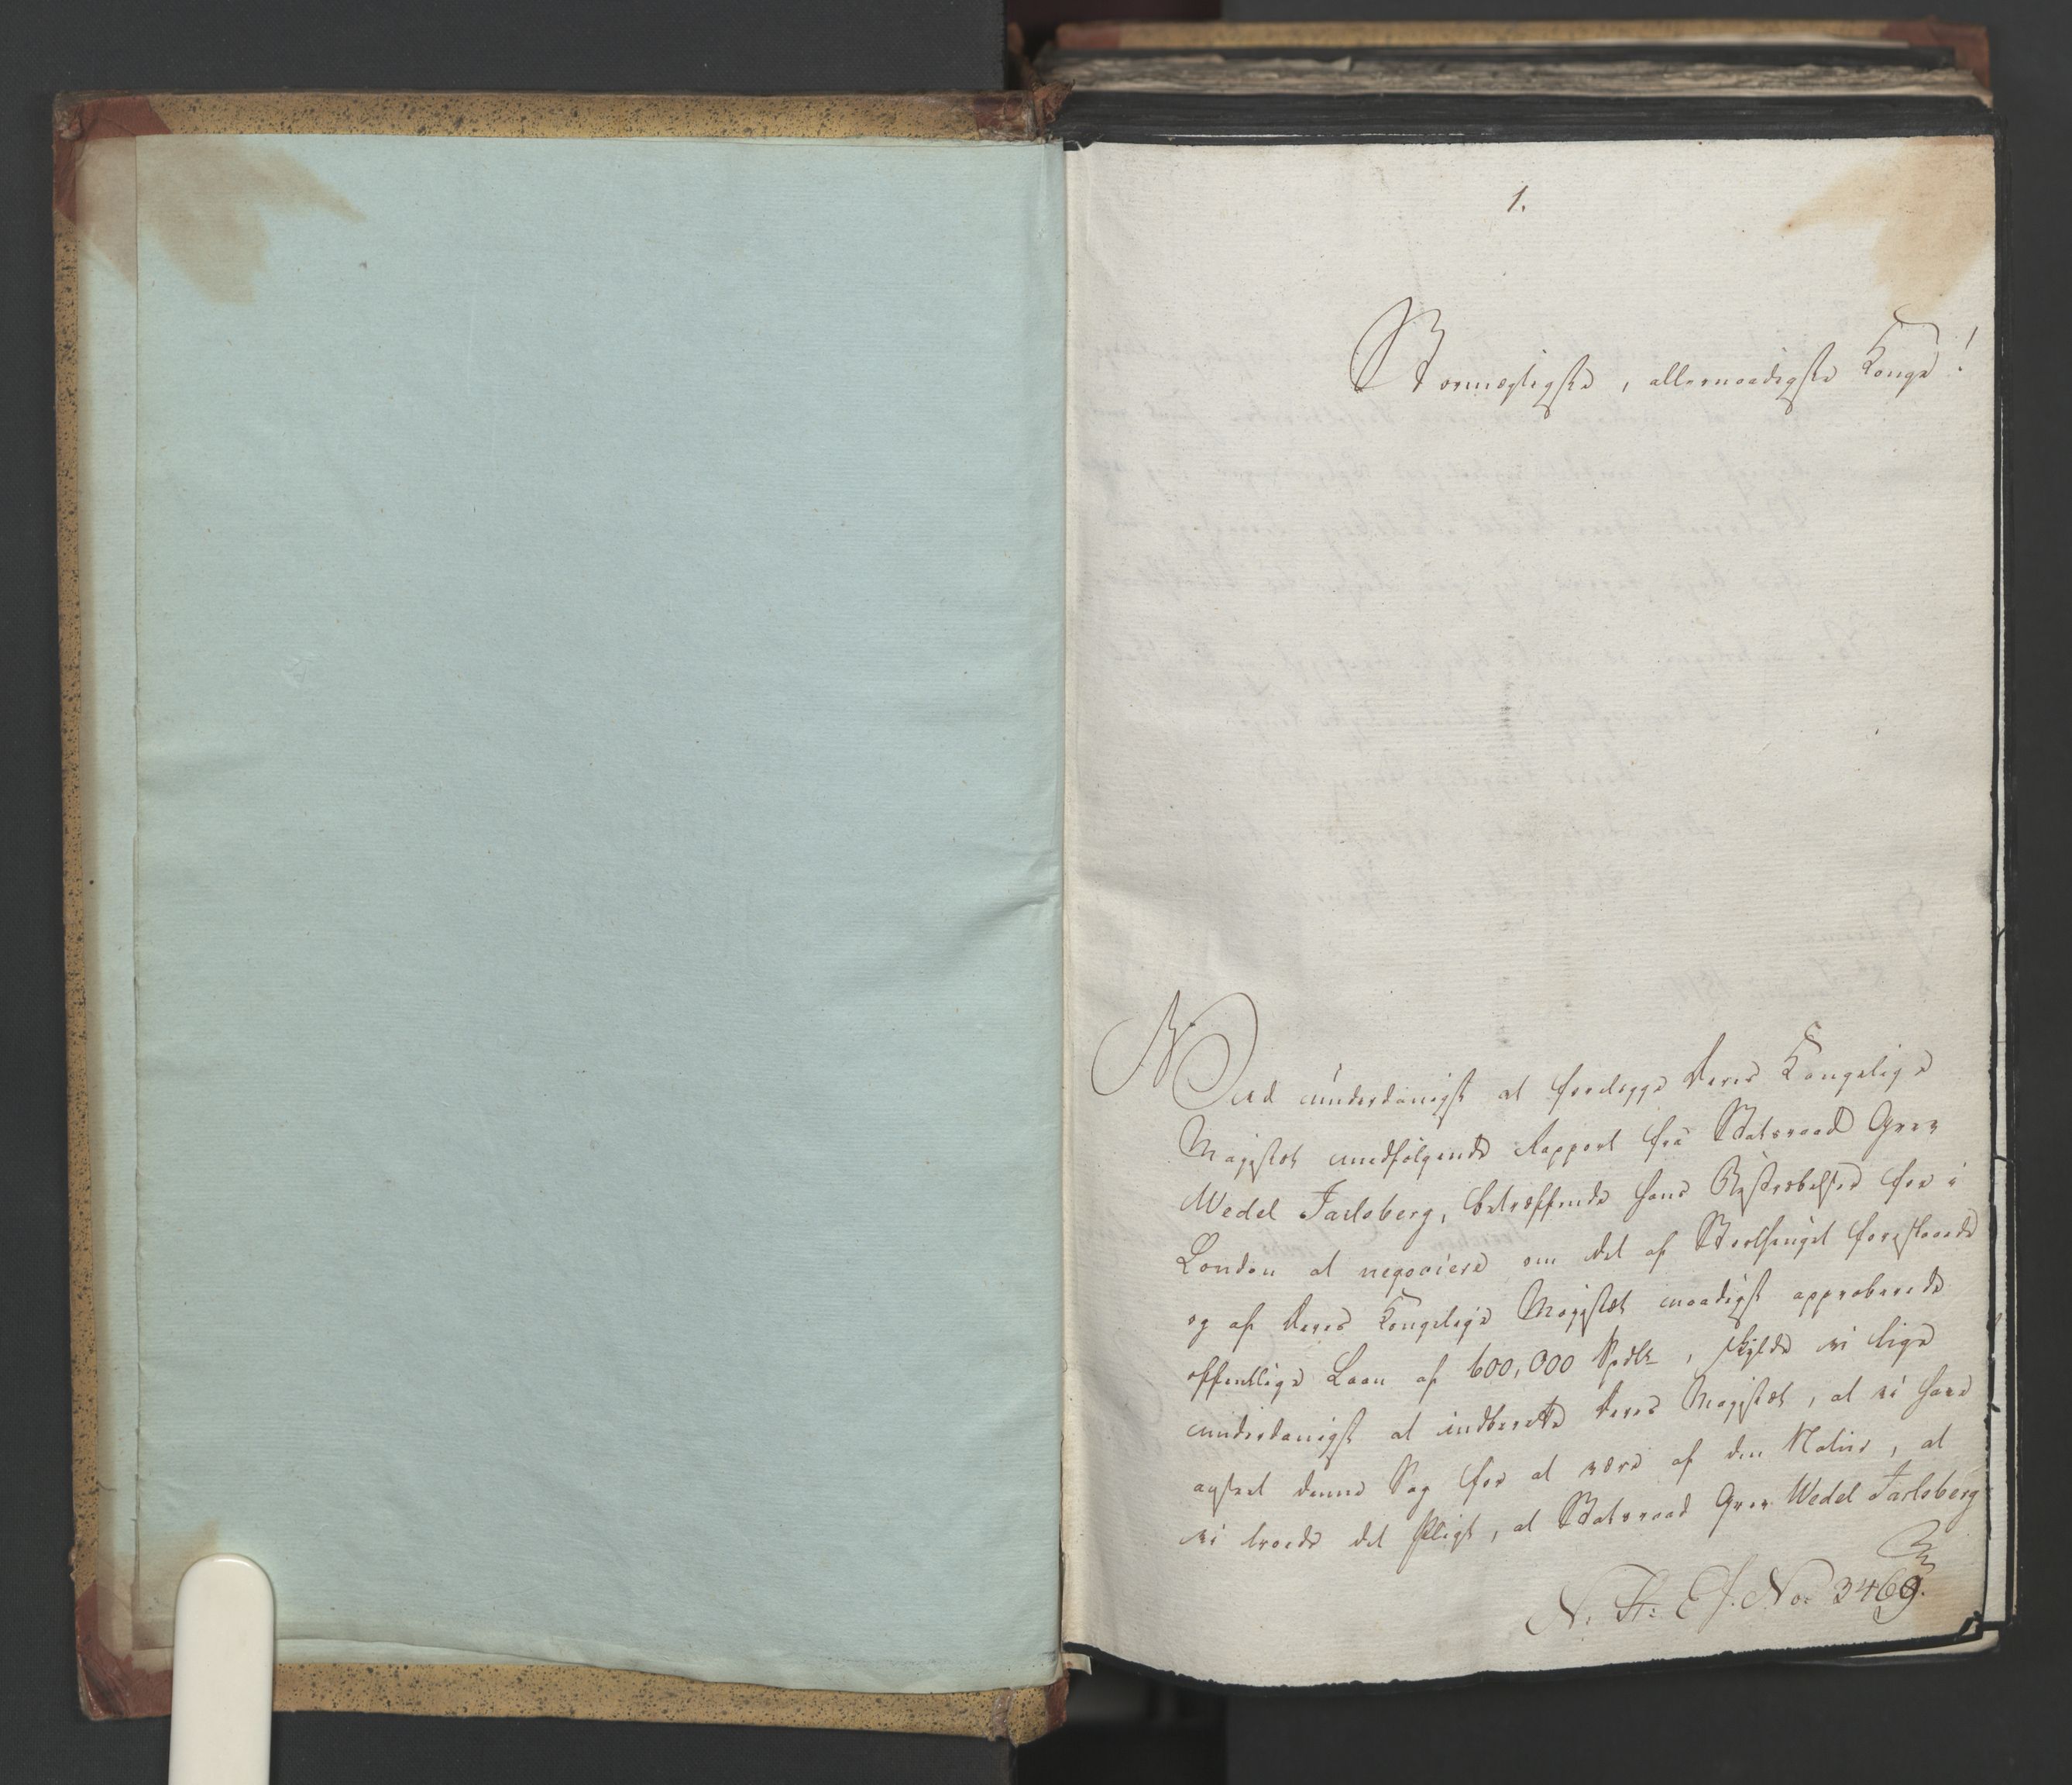 1.
Stormægtigste, allernaadigste Konge!
Ved underdanigst at forelægge Deres Kongelige
Majestæt medfølgende Rapport fra Statsraad Grev
Wedel Jarlsberg, betræffende hans Bestræbelser for i
London at negociere om det af Storthinget foreslaaede
og af Deres Kongelige Majestæt naadigst approberede
offentlige Laan af 600,000 Spdlr, skulde vi lige
underdanigst at indberette Deres Majestæt, at vi have
anseet denne Sag for at være af den Natur, at
vi troede det Pligt, at Statsraad Grev Wedel Jarlsberg
N. St: E J. No: 3469.